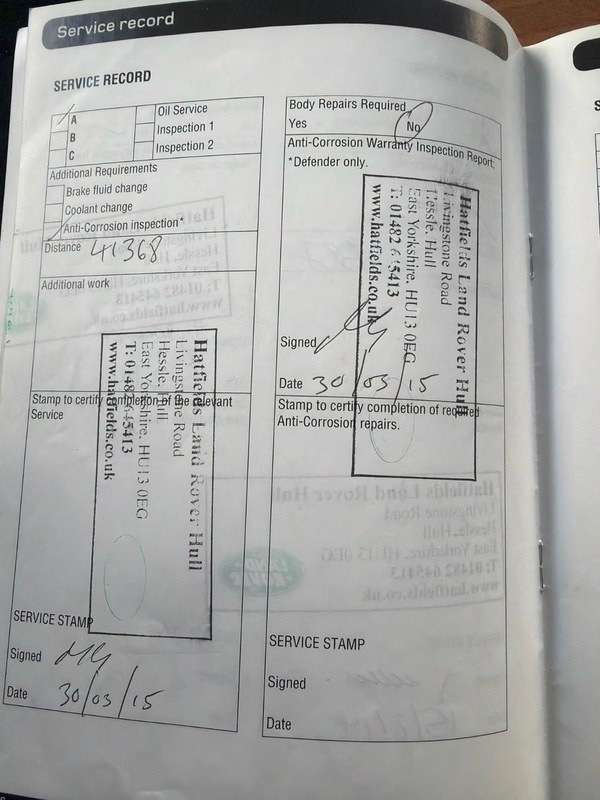 Service record
SERVICE RECORD
A
Oil Service
B
Inspection 1
C
Inspection 2
Additional Requirements
Brake fluid change
Coolant change
Anti-Corrosion inspection*
Distance 41368
Additional work
Stamp to certify completion of the relevant
Service
Hatfields Land Rover Hull
Livingstone Road
Hessle, Hull
East Yorkshire, HU13 0EG
T: 01482 645413
www.hatfields.co.uk
SERVICE STAMP
Signed
Date 30/03/15
Body Repairs Required
Yes
No
Anti-Corrosion Warranty Inspection Report:
*Defender only.
Hatfields Land Rover Hull
Livingstone Road
Hessle, Hull
East Yorkshire, HU13 0EG
T: 01482 645413
www.hatfields.co.uk
Signed
Date 30/03/15
Stamp to certify completion of required
Anti-Corrosion repairs.
SERVICE STAMP
Signed
Date